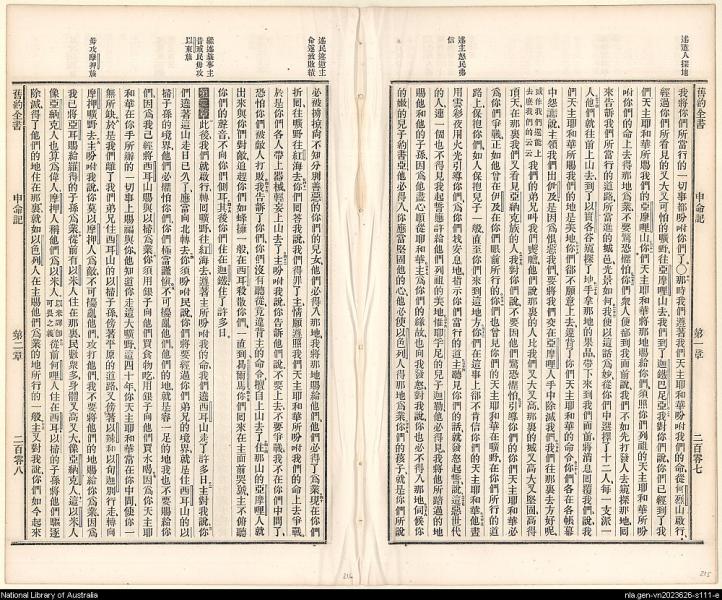 述遣人探地
述主怒民弗信
舊約全書 申命記 第一章 二百零七
我將你們所當行的一切事都吩咐你們了○那時我們遵著我們天主耶和華所吩咐我們的命從何烈山啟行
經過你們所看見的又大又可怕的曠野往亞摩哩山去我們到了迦鐵巴尼亞我對你們說你們已經到了我
們天主耶和華所賜我們的亞摩哩山你們天主耶和華將那地賜給你們須照你們列祖的天主耶和華所吩
咐你們的命上去得那地為業不要驚恐懼怕你們衆人便都到我面前說我們不如先打發人去窺探那地回
來告訴我們所當行的道路所當進的城邑光景如何我便以這話為妙從你們中選擇了十二人每一支派一
人他們就往前上山去到了以實各谷窺探了地手拿那地的果品帶下來到我們面前將消息回覆我們說我
們天主耶和華所賜我們的地是美地你們卻不願意上去違背了你們天主耶和華的命令你們各在各帳幕
中怨讟說主領我們出伊及是因為恨惡我們要將我們交在亞摩哩人手中除滅我們我們往那裏去方好呢
我們的弟兄叫我們膽怯他們說那裏的人比我們又大又高那裏的城又高大又堅固高得
頂天那裏我們又看見亞衲克族的人我對你們說不要因他們驚恐懼怕引導你們的你們天主耶和華必
為你們爭戰正如他曾在伊及在你們眼前所行的你們也曾見你們的天主耶和華在曠野在你們所行的道
路上保抱你們如人保抱兒子一般直至你們來到這地方你們在這事上卻不肯信你們的天主耶和華他晝
用雲彩夜用火光引導你們為你們找安息地指示你們當行的道主聽見你們的話就發怒起誓說這惡世代
的人連一個也不得見我起誓應許給他們列祖的美地惟耶孚尼的兒子迦勒他必得見我必將他所踏過的地
賜他和他的子孫因為他盡心順從耶和華主為你們的緣故也向我發怒對我說你也必不得入那地伺候你
的嫩的兒子約書亞他必得入你應當堅固他的心他必使以色列人得那地為業你們的孩子就是你們所說
述民違逆主命遂被敗績
繼述厥事主昔戒民勿攻以東族
勿攻摩押族
必被擄掠尚不知分別善惡的你們的兒女他們必得入那地我將那地賜給他們他們必得了為業現在你們
折回往紅海去你們回答我說我們得罪了主情願遵照我們天主耶和華所吩咐我們的命上去爭戰
於是你們各人帶上器械輕妄上山去了主吩咐我說你告訴他們說不要上去不要爭戰我不在你們中間了
恐怕你們被敵人打敗我告訴了你們你們沒有聽從竟違背主的命令擅自上山去了住那山的亞摩哩人就
出來與你們對敵追趕你們如蜂擁一般在西珥殺敗你們一直到曷爾馬你們回來在主面前哭號主不俯聽
你們的聲音不向你們側耳其後你們住在迦鐵住了許多日
第二章此後我們就啟行轉回曠野往紅海去遵著主所吩咐我的命我們遶西珥山走了許多日主對我說你
們遶著這山走日已久了應當向北轉去你須吩咐民說你們將要經過你們弟兄的境界就是住西珥山的以
掃子孫的境界他們必懼怕你們你們極當謹慎不可擾亂他們他們的地就是容一足的地我也不要賜給你
們因為我已經將西珥山賜與以掃為業你須用銀子向他們買食物吃用銀子向他們買水喝因為你天主耶
和華在你手所辦的一切事上賜福與你他知道你走這大曠野這四十年你天主耶和華常在你中間使你一
無所缺於是我們離了我們弟兄住西珥山的以掃子孫傍著平原的道路又傍著以辣和以旬迦別行走轉向
摩押曠野去主吩咐我說你莫以摩押人為敵不可擾亂他們攻打他們我不要將他們的地賜給你為業因為
我已將亞珥賜給羅得的子孫為業從前有以米人住在那裏民數衆多身體又高又大像亞納克人這以米人
像亞納克人也算為偉人摩押人稱他們為以米人從前何哩人住在西珥以掃的子孫將他們驅逐
除滅得了他們的地住在那裏就如以色列人在主賜他們為業的地所行的一般主又對我說你們如今起來
舊約全書 申命記 第二章 二百零八
216
215
National Library of Australia
nla.gen-vn2023626-s111-e